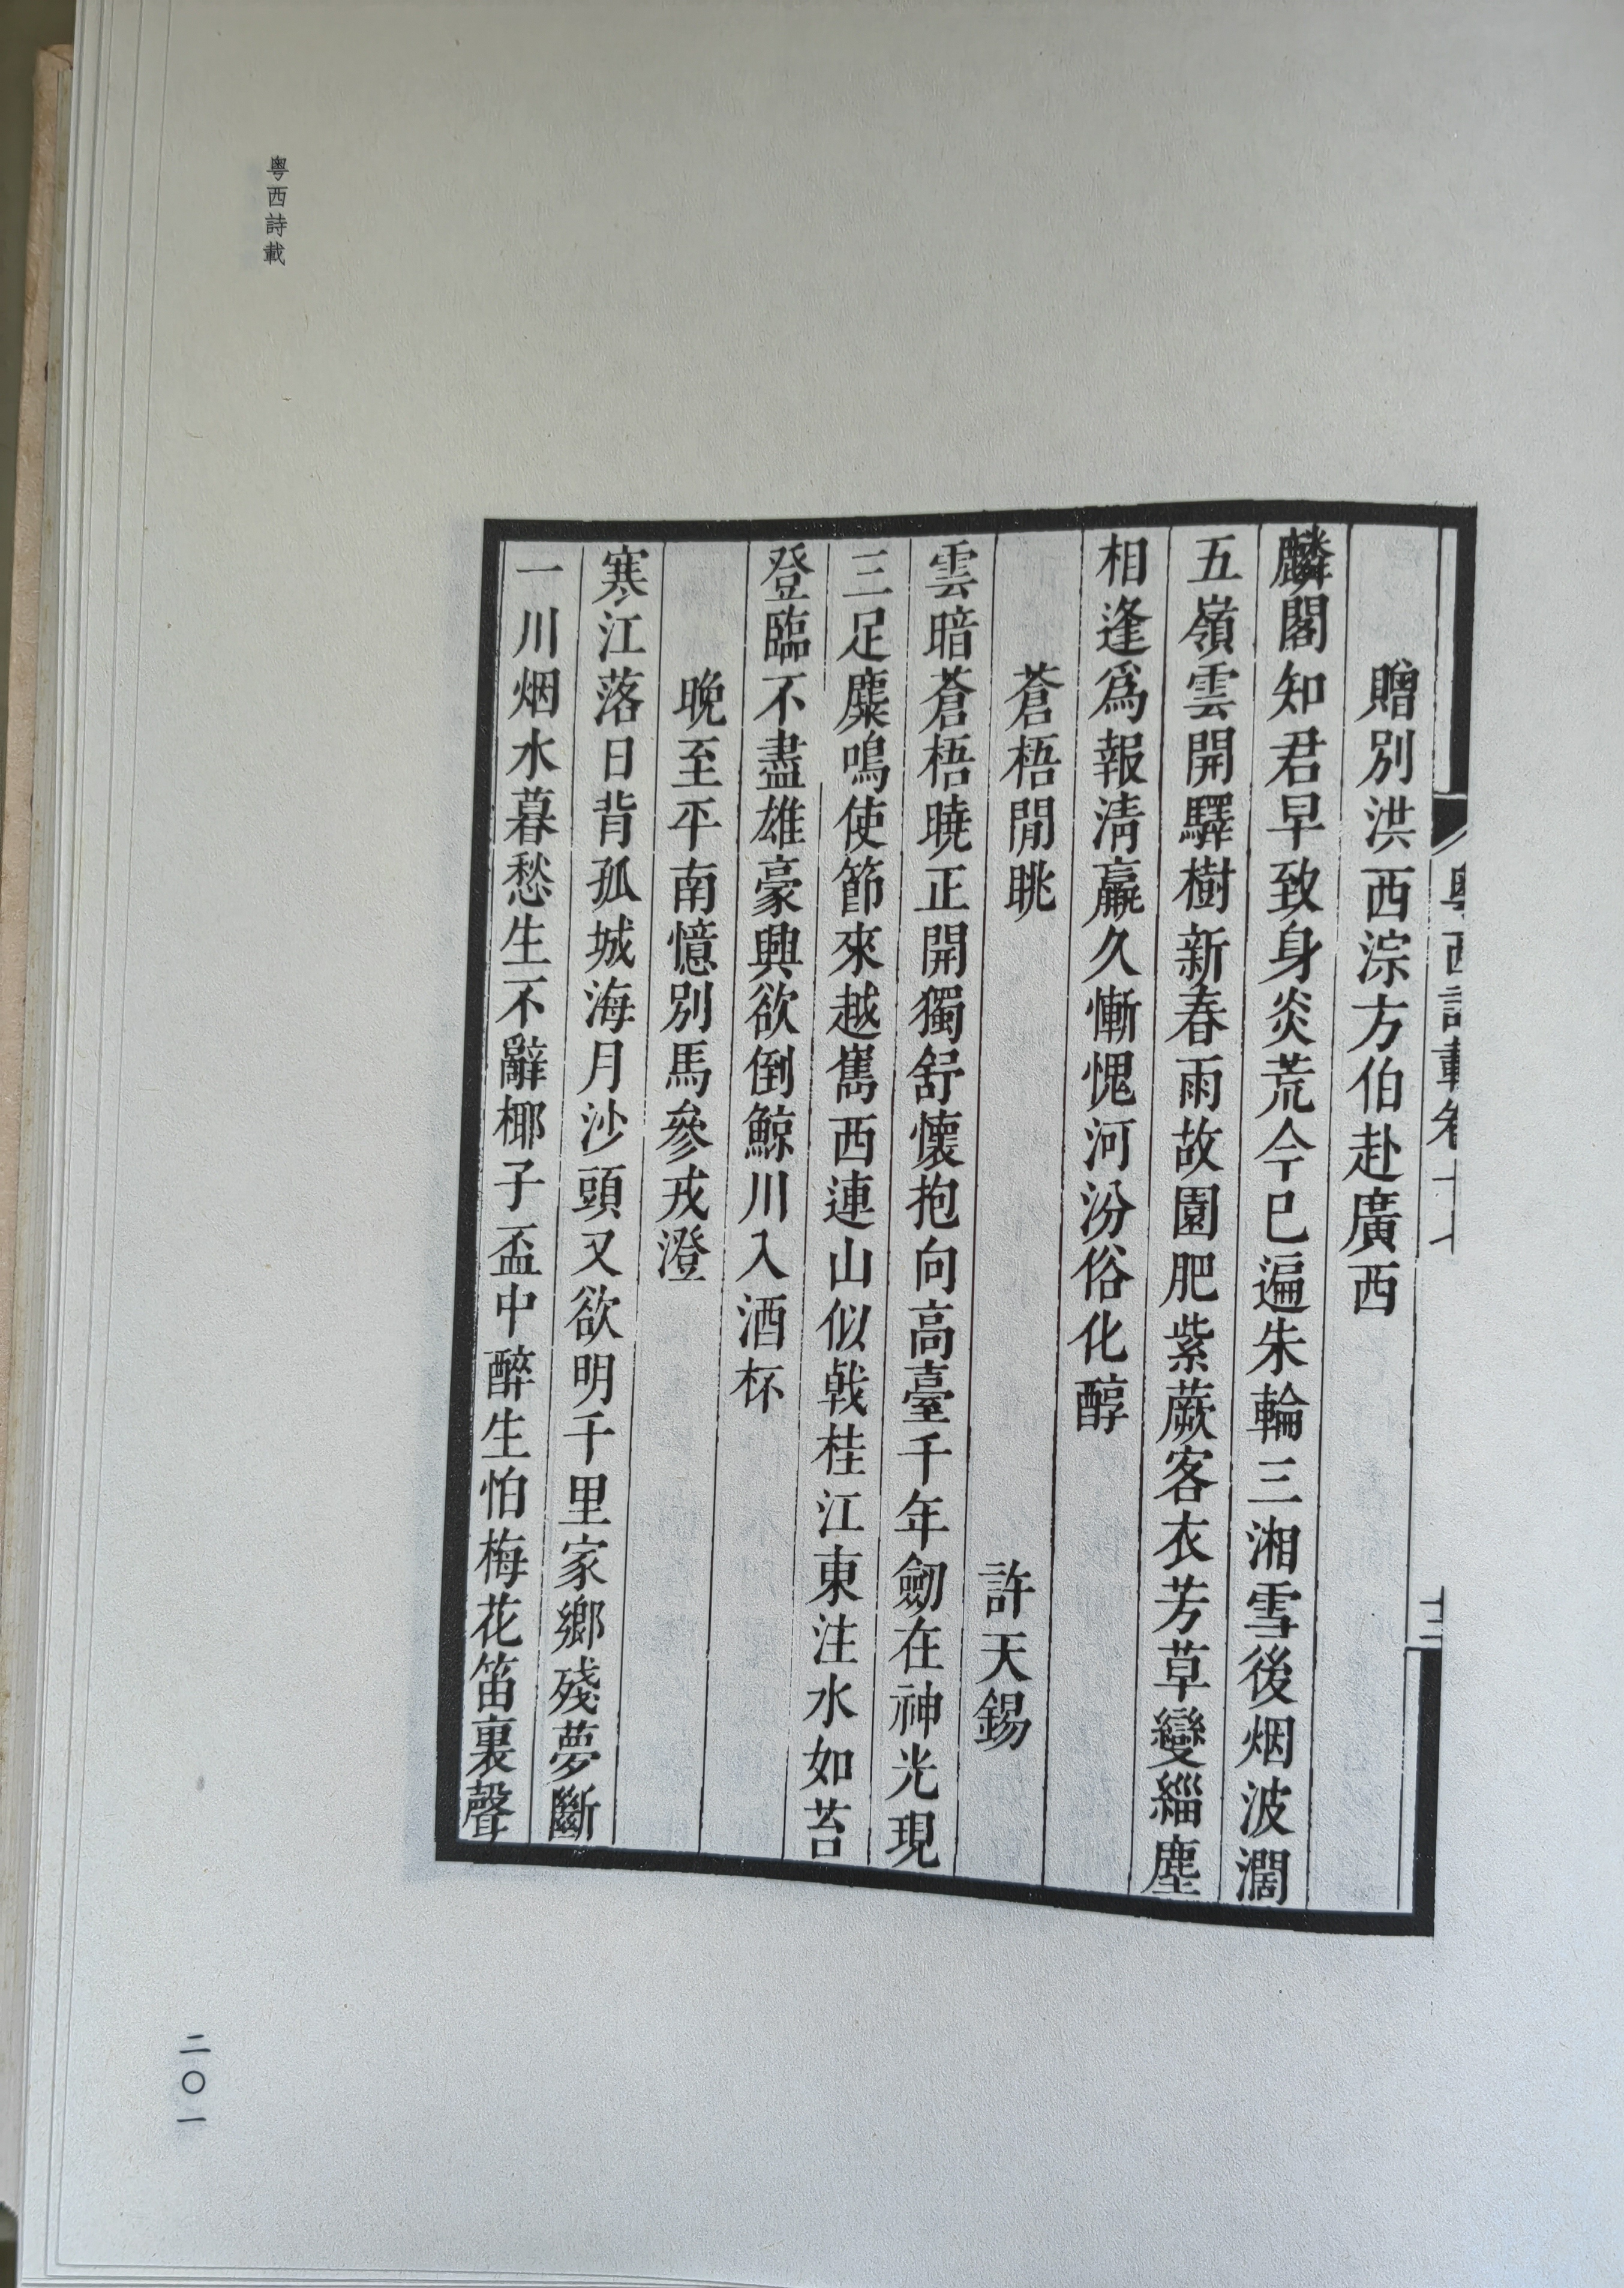 粤西詩載
粤西詩載卷十七
十三
贈別洪西淙方伯赴廣西
麟閣知君早致身炎荒今已遍朱輪三湘雪後烟波濶
五嶺雲開驛樹新春雨故園肥紫蕨客衣芳草變緇塵
相逢爲報淸羸久慚愧河汾俗化醇
蒼梧閒眺
許天錫
雲暗蒼梧曉正開獨舒懷抱向高臺千年劒在神光現
三足麋鳴使節來越嶲西連山似戟桂江東注水如苔
登臨不盡雄豪興欲倒鯨川入酒杯
晚至平南憶別馬參戎澄
寒江落日背孤城海月沙頭又欲明千里家鄉殘夢斷
一川烟水暮愁生不辭椰子盃中醉生怕梅花笛裏聲
二〇一